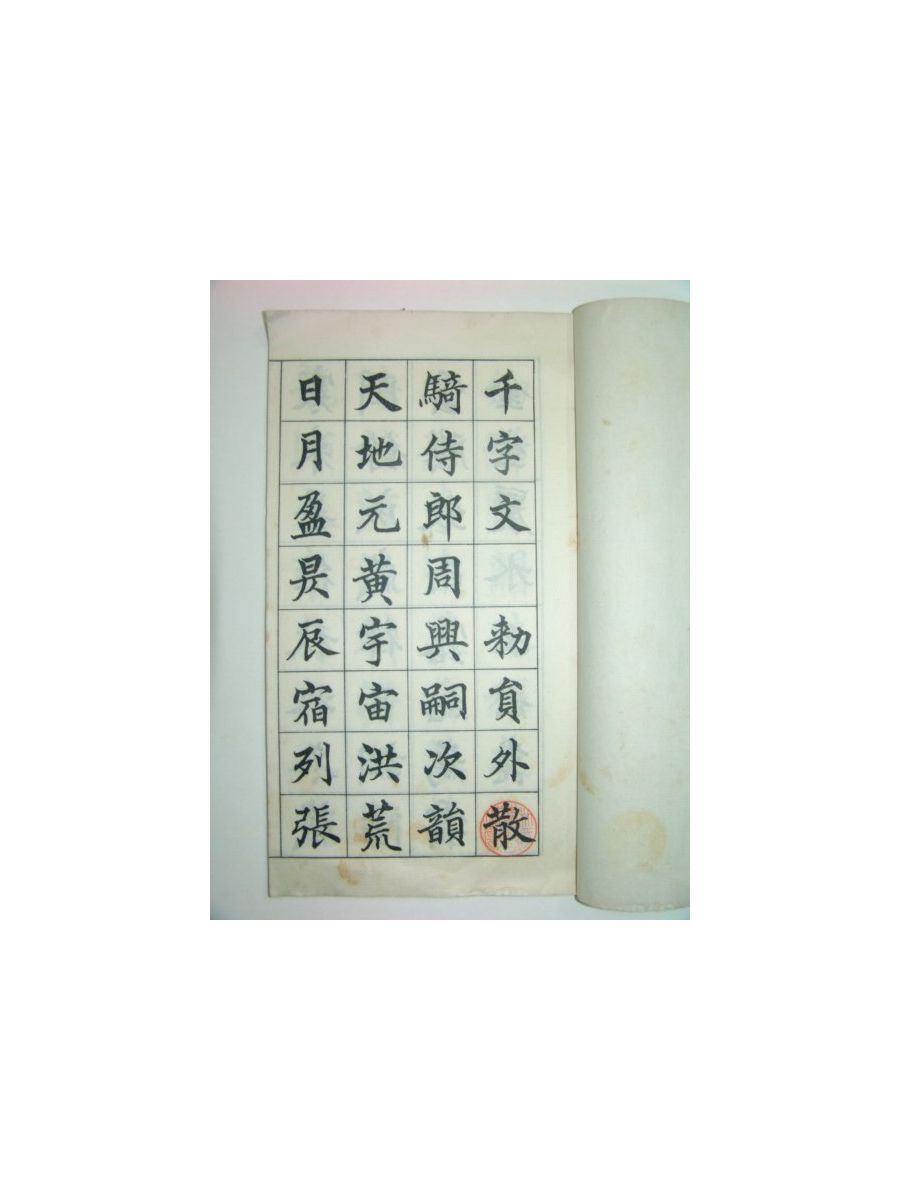 千字文 勑負外散
騎侍郎周興嗣次韻
天地元黃宇宙洪荒
日月盈昃辰宿列張